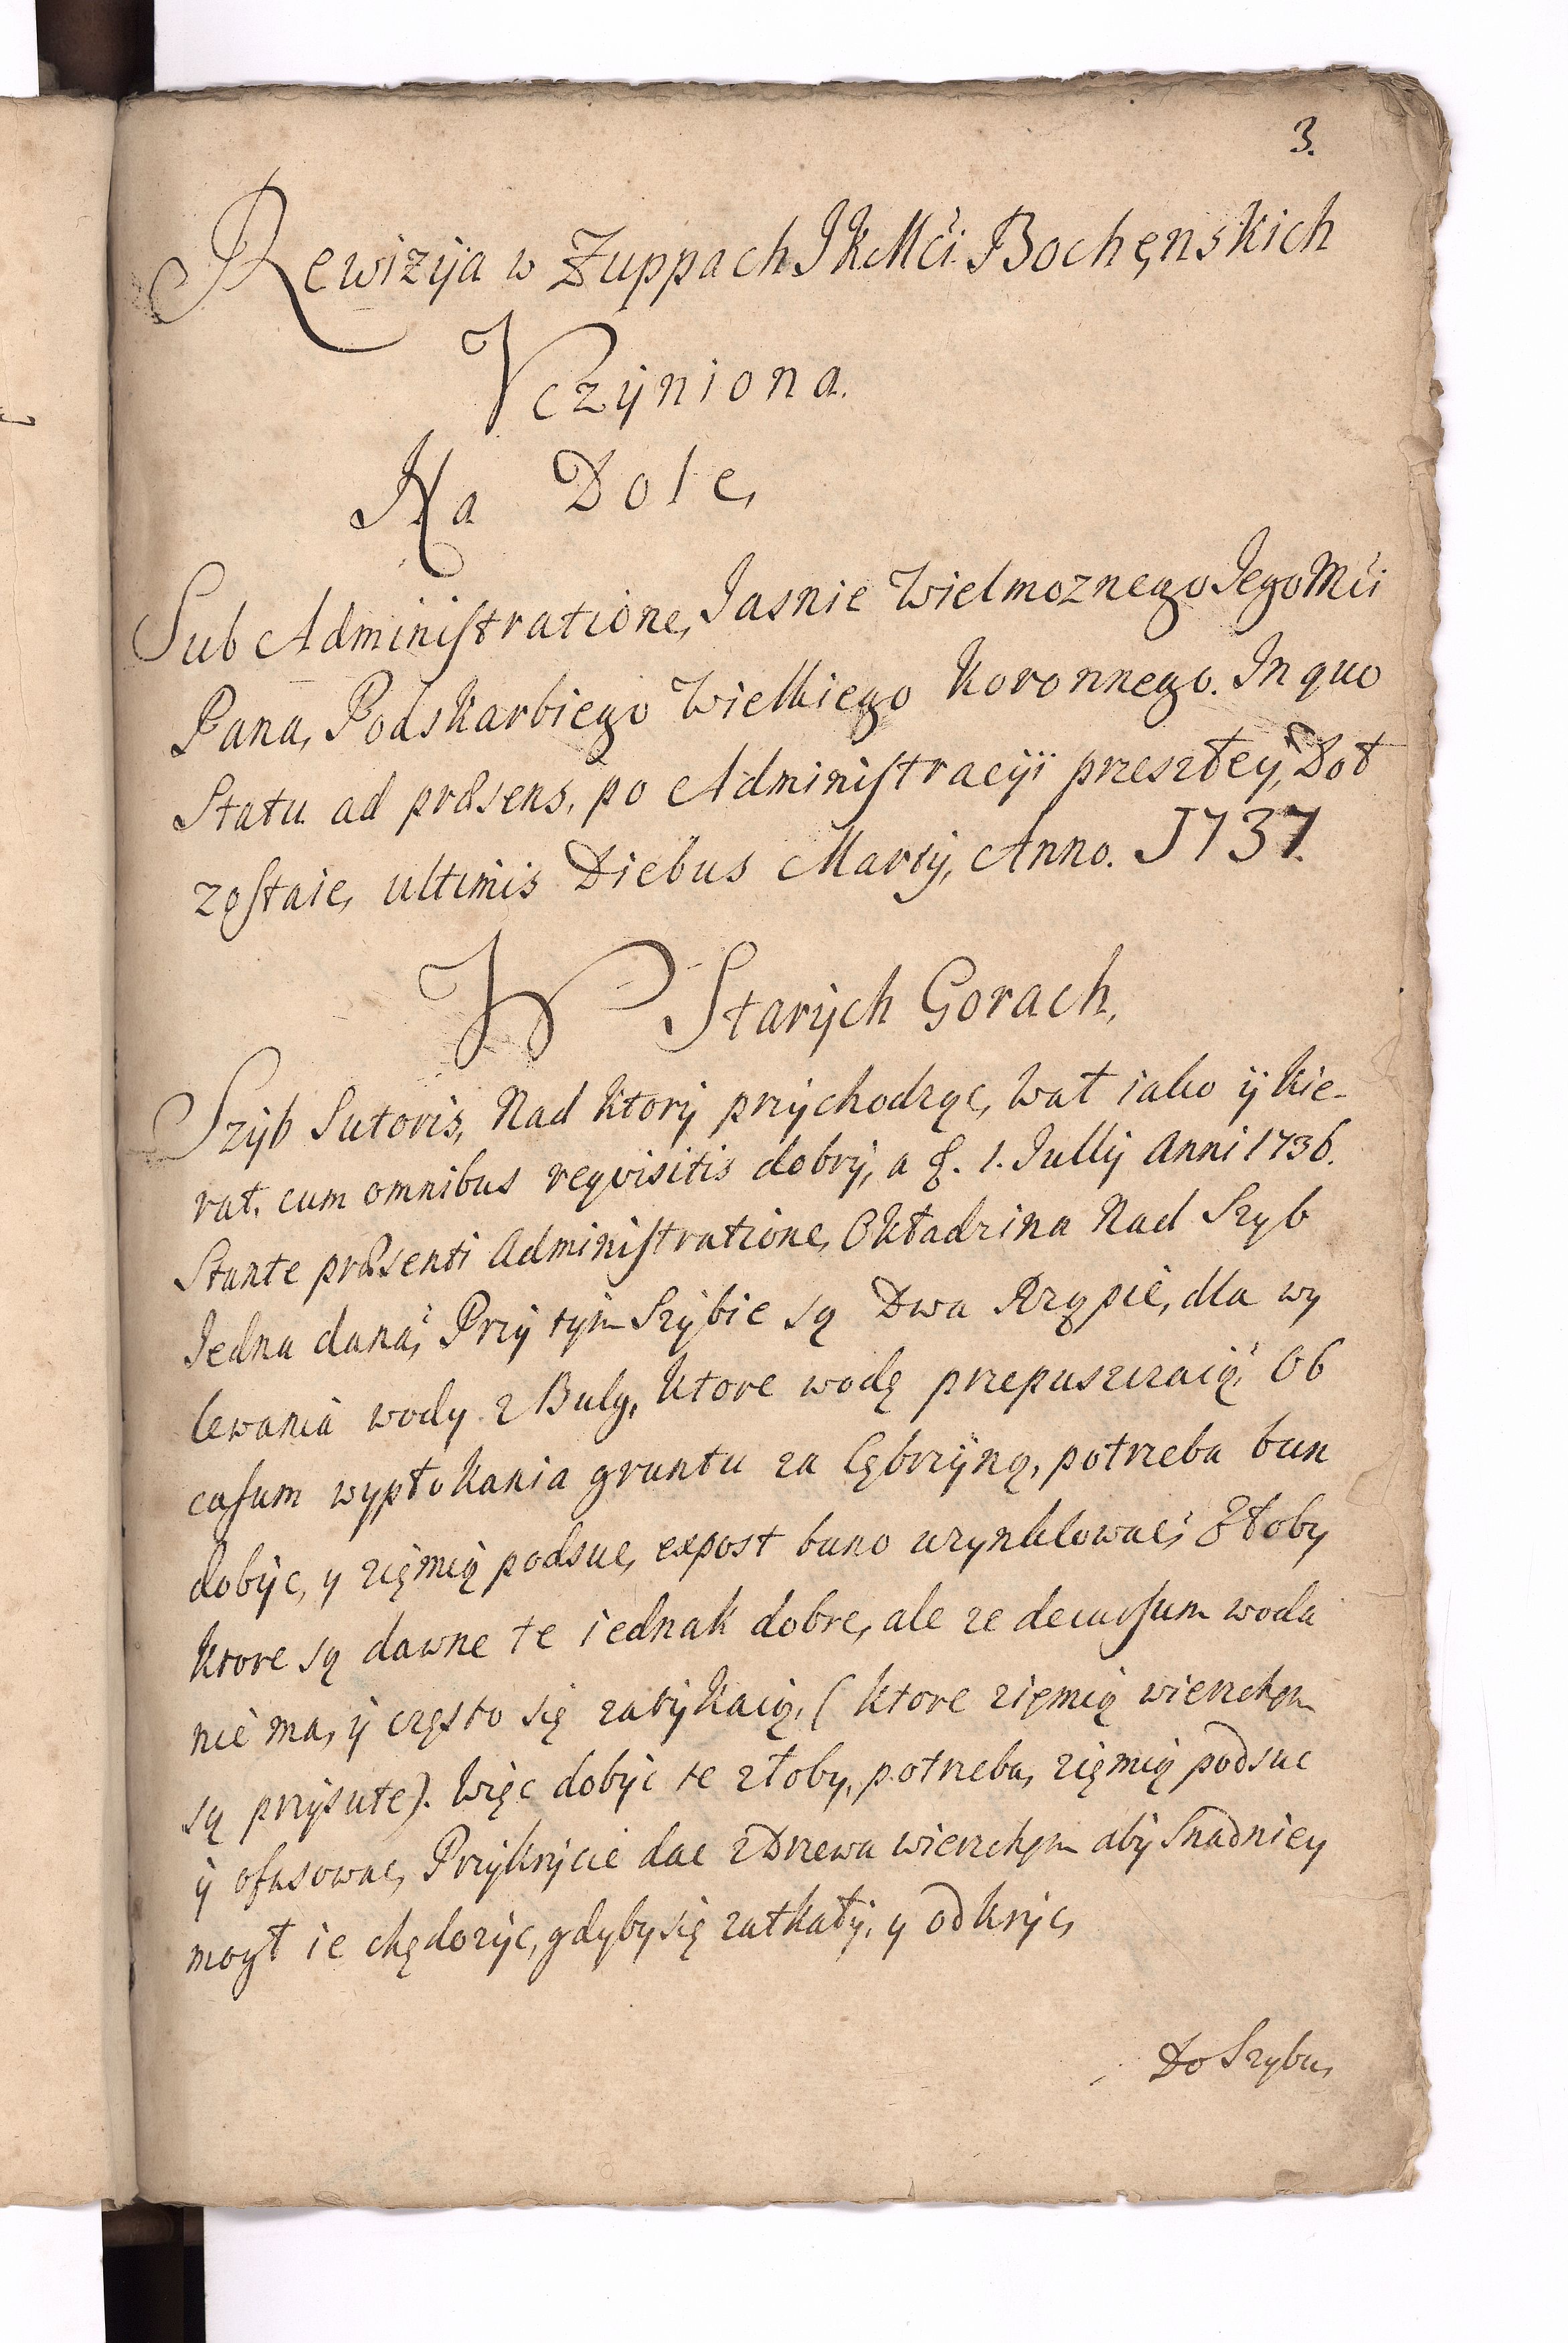 3.
Rewizyia w Zuppach JKMći Bochęnskich
Vczyniona.
Na Dole,
Sub Administratione, Jasnie Wielmoznego Jego Mći
Pana, Podskarbiego Wielkiego Koronnego. In quo
Statu ad præsens, po Administracyi przeszłey, Doł
zostaie, ultimis Diebus Marty, Anno. 1737.
W Starych Gorach,
Szyb Sutoris, Nad ktory przychodząc, Wał iako ÿ kie-
rat, cum omnibus reqvisitis dobry, a 1. Jully Anni 1736.
Stante præsenti Administratione, Okładzina Nad Szyb
Jedna dana, Przy tym Szybie są Dwa Rząpie, dla wy
lewania wody z Bulg, ktore wodę przepuszczaią, Ob
casum wypłokania gruntu za Cębrzyną, potrzeba bun
dobyc, y zięmią podsuc, expost Ztoby
ktore są dawne te iednak dobre, ale ze decursum woda
nie ma, ÿ często się zatykaią, (ktore zięmią wierzchęm
są przysute). Więc dobyc te złoby, potrzeba, zięmią podsuc
ÿ ofusowac, Przykrycie dac z Drzewa wierzchęm aby Snadniey
mogł ie chędozyc, gdyby się zatkały, y odkryc,
Do Szybu,